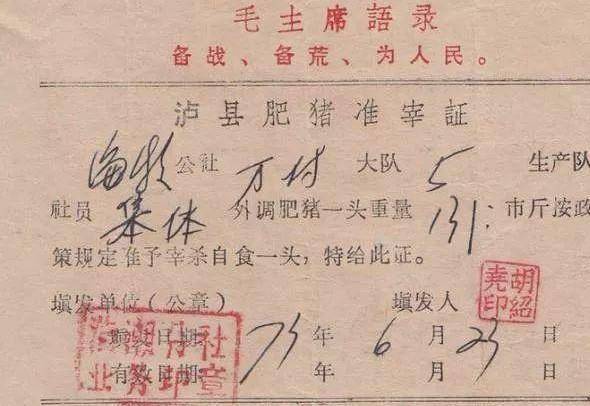 毛主席語录
备战、备荒、为人民。
泸县肥猪准宰証
海潮公社 万付 大队 5 生产队
社员 集体 外调肥猪一头重量 131: 市斤按政
策规定准予宰杀自食一头，特给此证。
填发单位(公章) 填发人 胡紹尭印
填发日期 75 年 6 月 23 日
有效日期 年 月 日
社章